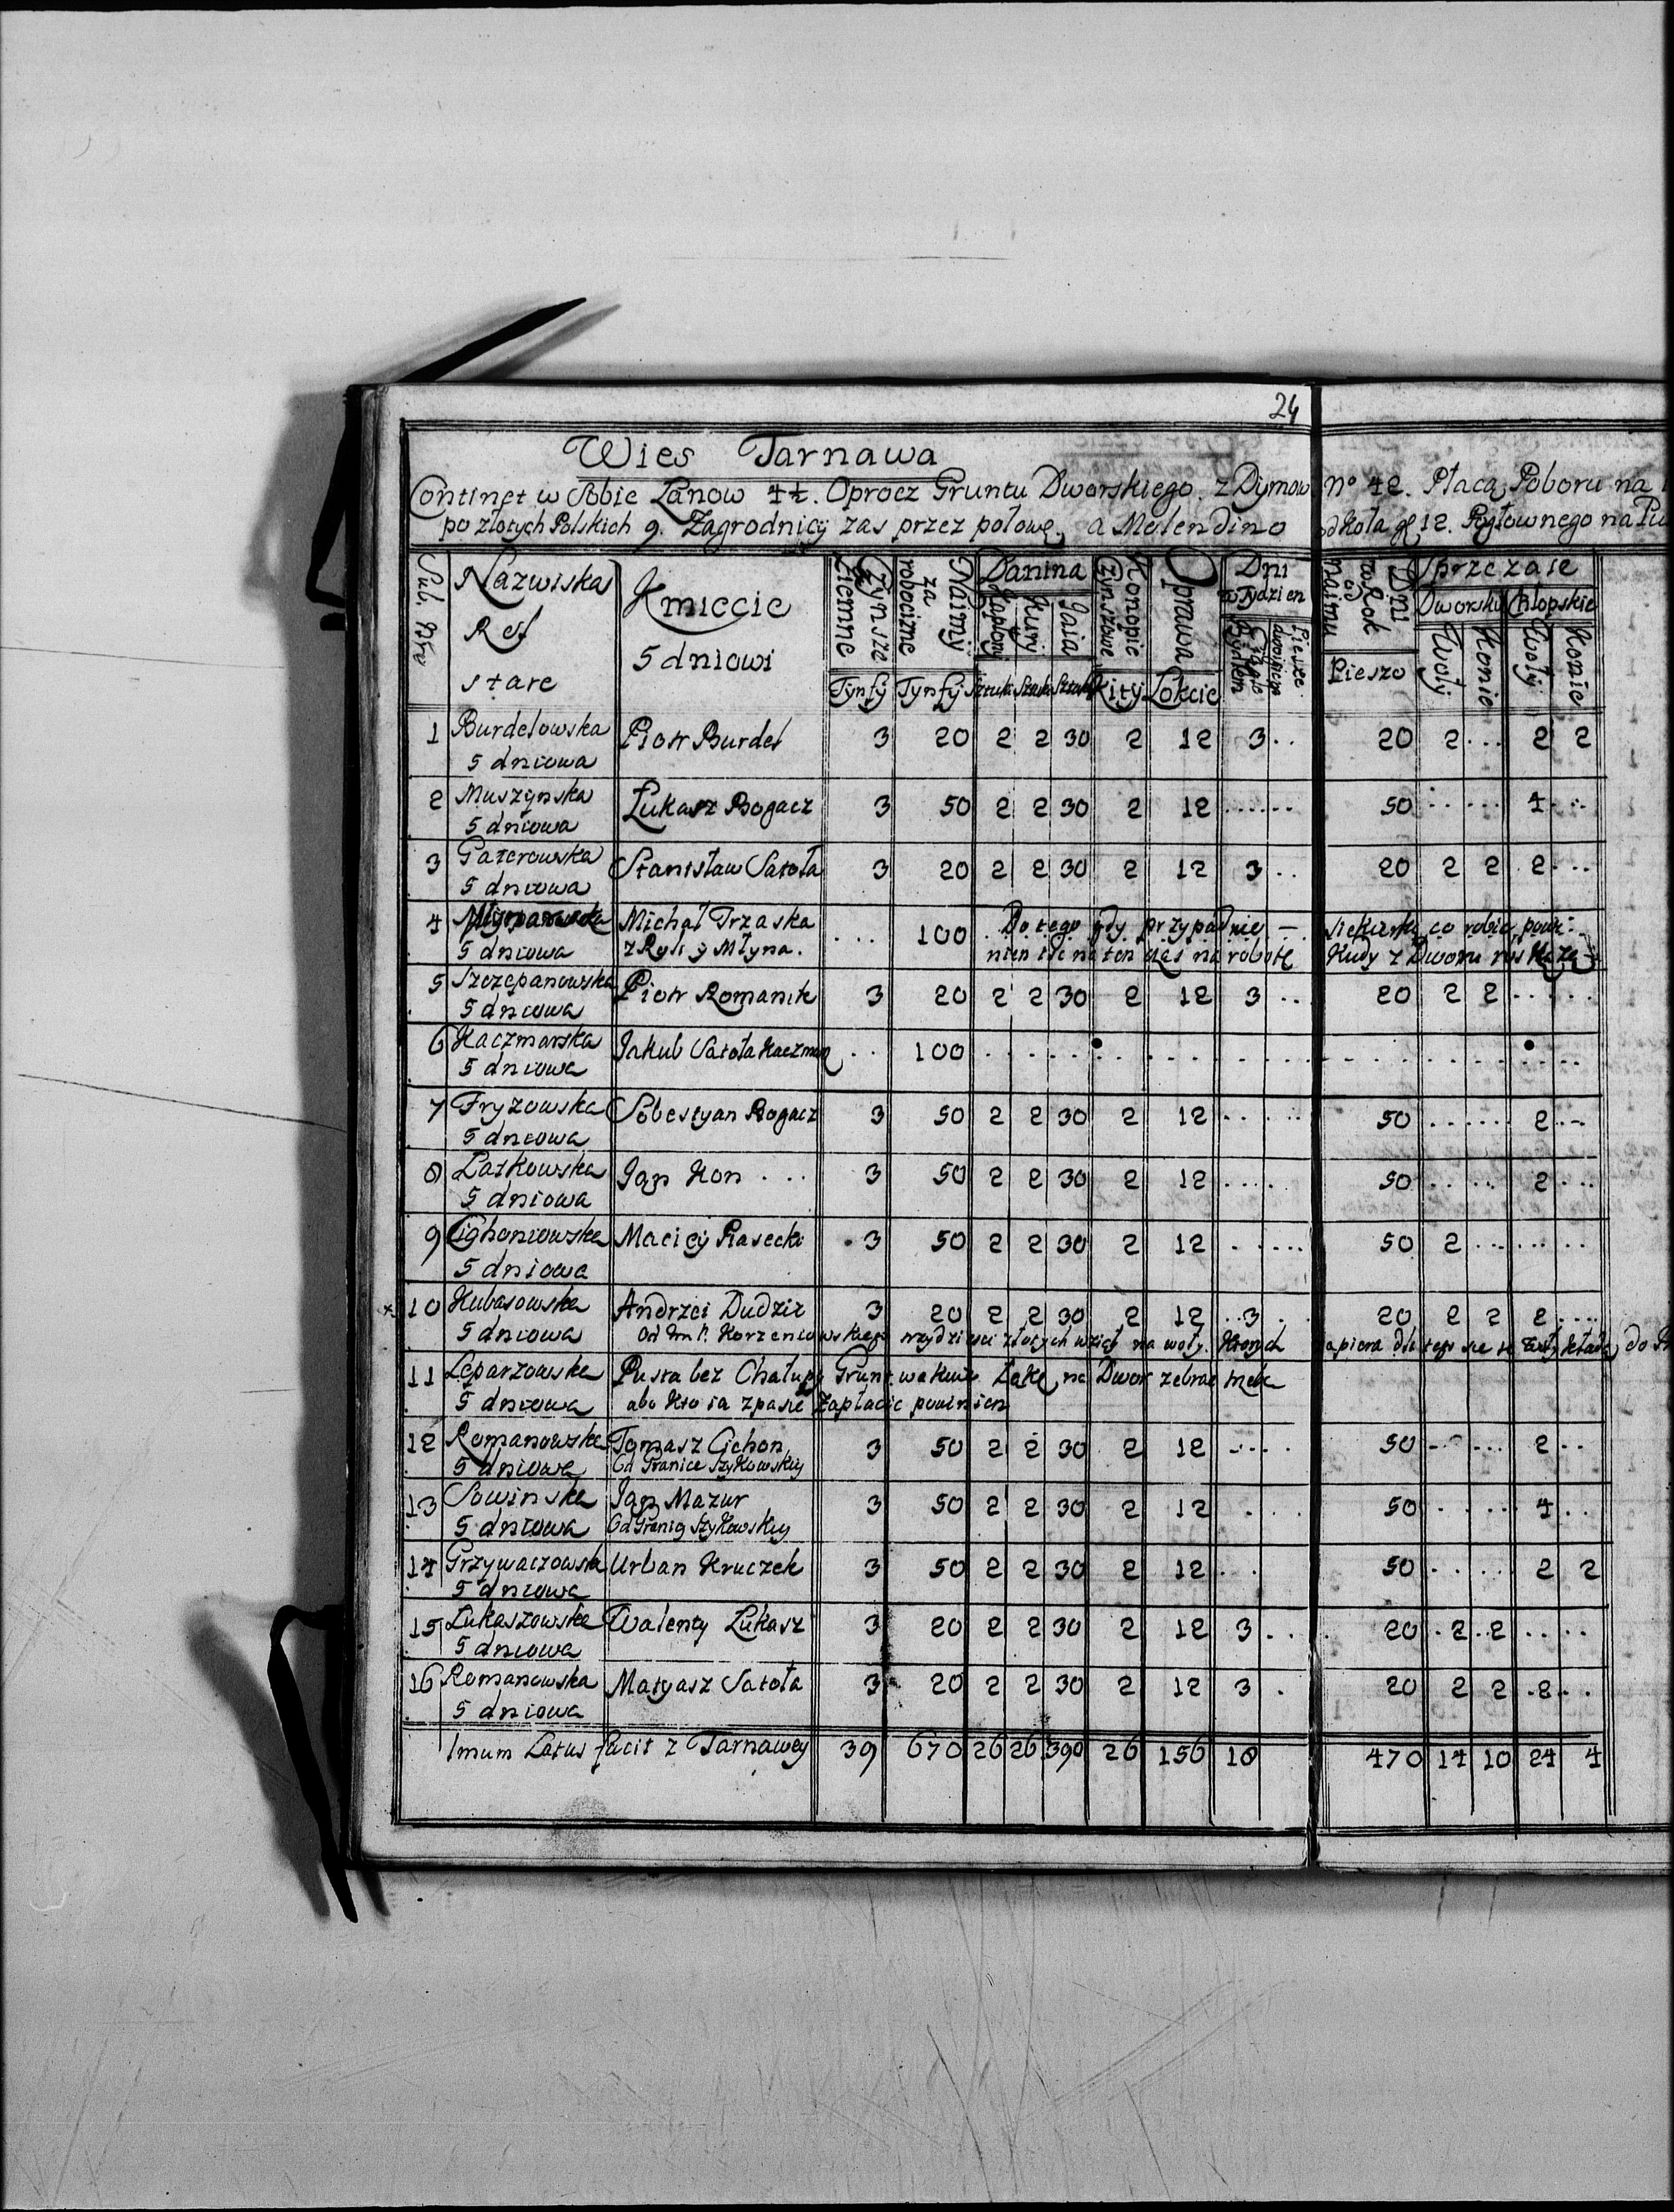 24
Wies Tarnawa
Continet w Sobie Lanow 4½. Oprocz Gruntu Dworskiego. z Dymow No 42. Płacą Poboru na
po złotych Polskich 9. Zagrodnicy zas przez połowę, a Molendino od koła 12. Pogłownego na
Sub. Nro
Nazwiska Rol stare
Kmiecie 5 dniowi
Czynsze Ziemne
Naimy za robocizne
Danina
Kapłony Kury Jaia
Konopie Czinszowe
Oprawa
Dni w Tydzien
Ciągłe Bydłem
Piesze dwoygiem
Dni na Rok od naimu
Sprzezaie
Dworskie Chłopskie
Woły Konie Woły Konie
Tynfy Tynfy Sztuki Sztuki Sztuki Kity Łokcie Pieszo
1 Burdelowska Piotr Burdel 3 20 2 2 30 2 12 3 .. 20 2 ... 2 2
5 dniowa
2 Muszynska Łukasz Bogacz 3 50 2 2 30 2 12 ...... 50 ..... 4 ...
5 dniowa
3 Gazerowska Stanisław Satoła 3 20 2 2 30 2 12 3 .. 20 2 2 2 ...
5 dniowa
4 Michał Trzaska ... 100 Do tego gdy przypadnie — siekierką co robic powi:
5 dniowa z Roli y Młyna. nien isc na ten czas na robotę Kudy z Dworu roskażą
5 Szczepanowska Piotr Romanik 3 20 2 2 30 2 12 3 .. 20 2 2 .....
5 dniowa
6 Kaczmarska Jakub Satoła Kaczmarz .. 100 ..........
5 dniowa
7 Fryzowska Sobestyan Bogacz 3 50 2 2 30 2 12 .... 50 ...... 2 ..
5 dniowa
8 Laskowska Jan Kon ... 3 50 2 2 30 2 12 .... 50 .... 2 ...
5 dniowa
9 Cichoniowska Maciey Piasecki 3 50 2 2 30 2 12 ..... 50 2 ......
5 dniowa
x 10 Kubasowska Andrzei Dudzic 3 20 2 2 30 2 12 3 . 20 2 2 2 ....
5 dniowa Od Im P. Korzeniowskiego złotych wziął na woły. Ktorych zapiera dla tego się te woły kładą do
11 Leparzowska Pusta bez Chałupy Grunt wakuie Łąkę na Dwor zebrac trzeba
5 dniowa abo kto ią zpasie Zapłacic powinien
12 Romanowska Tomasz Cichon 3 50 2 2 30 2 12 .... 50 ..... 2 ..
5 dniowa Od Granice Szykowskiey
13 Sowinska Jan Mazur 3 50 2 2 30 2 12 .... 50 .... 4 ..
5 dniowa Od Granicy Szykowskiey
14 Grzywaczowska Urban Kruczek 3 50 2 2 30 2 12 .. 50 .... 2 2
5 dniowa
15 Łukaszowska Walenty Łukasz 3 20 2 2 30 2 12 3 .. 20 2 2 ....
5 dniowa
16 Romanowska Matyasz Satoła 3 20 2 2 30 2 12 3 . 20 2 2 2 ..
5 dniowa
1mum Latus facit z Tarnawey 39 670 26 26 390 26 156 18 470 14 10 24 4